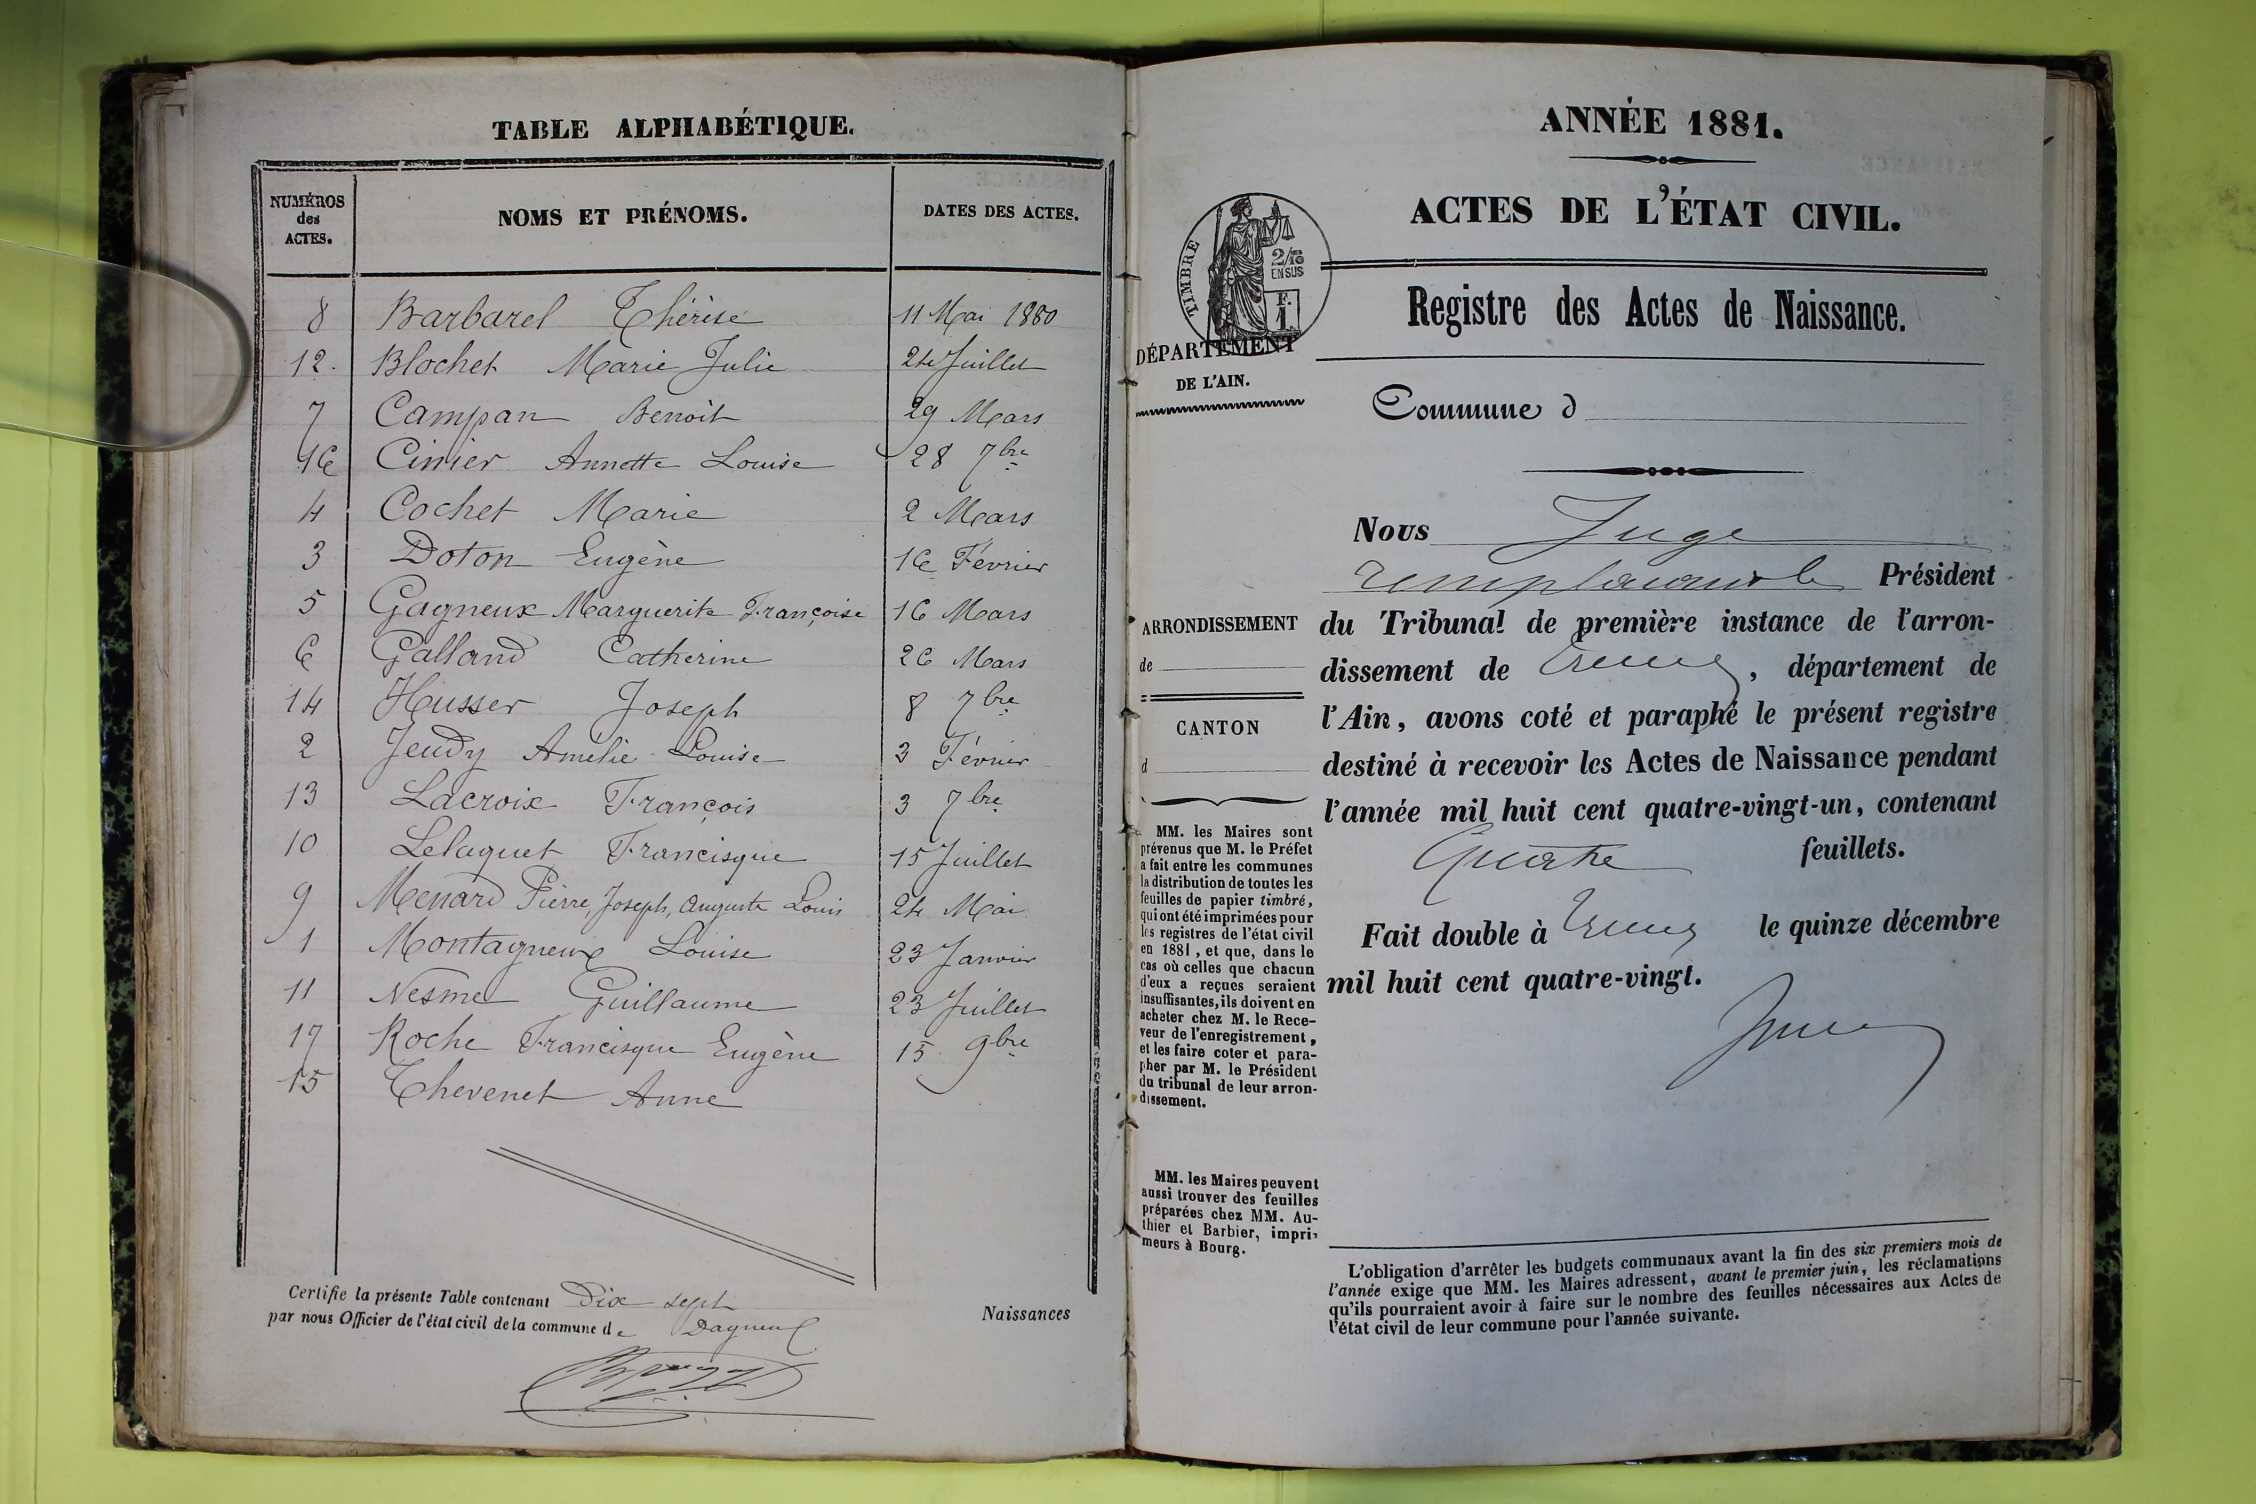 TABLE ALPHABÉTIQUE.
NUMÉROS des ACTES. NOMS ET PRÉNOMS. DATES DES ACTES.
8 Barbarel Thérèse 11 Mai 1880
12. Blochet Marie Julie 24 Juillet
7 Campan Benoit 29 Mars
16 Cinier Annette Louise 28 7bre
4 Cochet Marie 2 Mars
3 Doton Eugène 16 Février
5 Gagneux Marguerite Françoise 16 Mars
6 Galland Catherine 26 Mars
14 Husser Joseph 8 7bre
2 Jeudy Amélie Louise 3 Février
13 Lacroix François 3 7bre
10 Lelaquet Francisque 15 Juillet
9 Menard Pierre, Joseph, Auguste Louis 24 Mai
1 Montagneux Louise 23 Janvier
11 Nesme Guillaume 23 Juillet
17 Roche Francisque Eugène 15 9bre
15 Thevenet Anne
Certifie la présente Table contenant Dix sept Naissances
par nous Officier de l'état civil de la commune de Dagneux
ANNÉE 1881.
ACTES DE L'ÉTAT CIVIL.
TIMBRE
2/10
EN SUS
F.
1
DÉPARTEMENT
DE L'AIN.
Registre des Actes de Naissance.
Commune d
Nous Juge
remplaçant le Président
du Tribunal de première instance de l'arron-
dissement de , département de
l'Ain, avons coté et paraphé le présent registre
destiné à recevoir les Actes de Naissance pendant
l'année mil huit cent quatre-vingt-un, contenant
Quatre feuillets.
Fait double à le quinze décembre
mil huit cent quatre-vingt.
ARRONDISSEMENT
de
CANTON
d
MM. les Maires sont
prévenus que M. le Préfet
a fait entre les communes
la distribution de toutes les
feuilles de papier timbré,
qui ont été imprimées pour
les registres de l'état civil
en 1881, et que, dans le
cas où celles que chacun
d'eux a reçues seraient
insuffisantes, ils doivent en
acheter chez M. le Rece-
veur de l'enregistrement,
et les faire coter et para-
pher par M. le Président
du tribunal de leur arron-
dissement.
MM. les Maires peuvent
aussi trouver des feuilles
préparées chez MM. Au-
thier et Barbier, impri-
meurs à Bourg.
L'obligation d'arrêter les budgets communaux avant la fin des six premiers mois de
l'année exige que MM. les Maires adressent, avant le premier juin, les réclamations
qu'ils pourraient avoir à faire sur le nombre des feuilles nécessaires aux Actes de
l'état civil de leur commune pour l'année suivante.